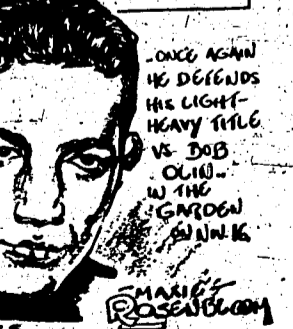 ..ONCE AGAIN
HE DEFENDS
HIS LIGHT-
HEAVY TITLE
VS BOB
OLIN..
IN THE
GARDEN
"MAXIE"
ROSENBLOOM